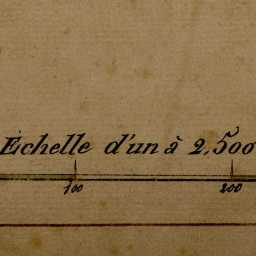 Échelle d'un à 2,500
100 200